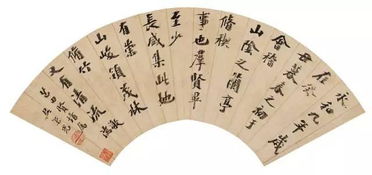 永和九年歲
在癸
丑暮春之初于
會稽
山陰之蘭亭
脩禊
事也群賢畢
至少
長咸集此地
有崇
山峻領茂林
脩竹
又有清流激
湍